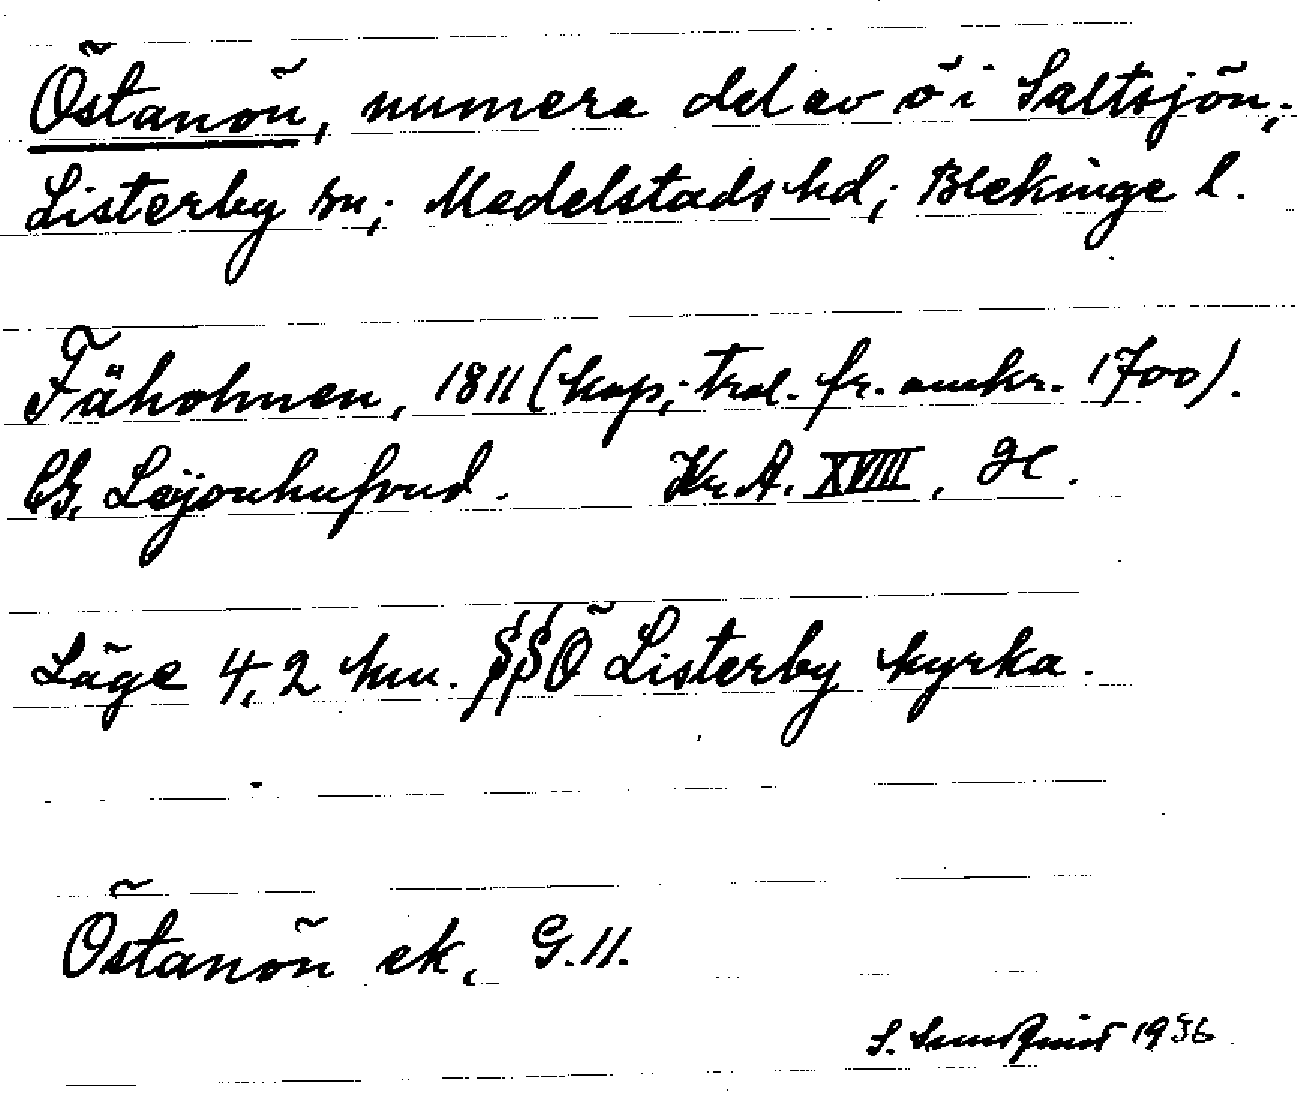 Östanön, numera del av ö i Saltsjön,
Listerby sn; Medelstads hd; Blekinge l.
Fäholmen, 1811 (kop; trol. fr. omkr. 1700).
CG. Leÿonhufvud. Kr. A. XVIII, H.
Läge 4,2 km. SSÖ Listerby kyrka.
Östanön ek, G.11.
S. Sundquist 1936